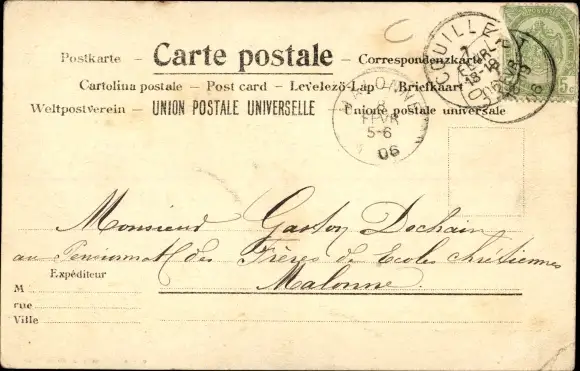 Postkarte – Carte postale – Correspondenzkarte
Cartolina postale – Post card – Levelező-Lap – Briefkaart
Weltpostverein – UNION POSTALE UNIVERSELLE – Unione postale universale
MALONNE
8
FEVR
5-6
06
5c
Monsieur Gaston Dochain
au Pensionnat des Frères des Ecoles chrétiennes
Malonne
Expéditeur
M
rue
Ville